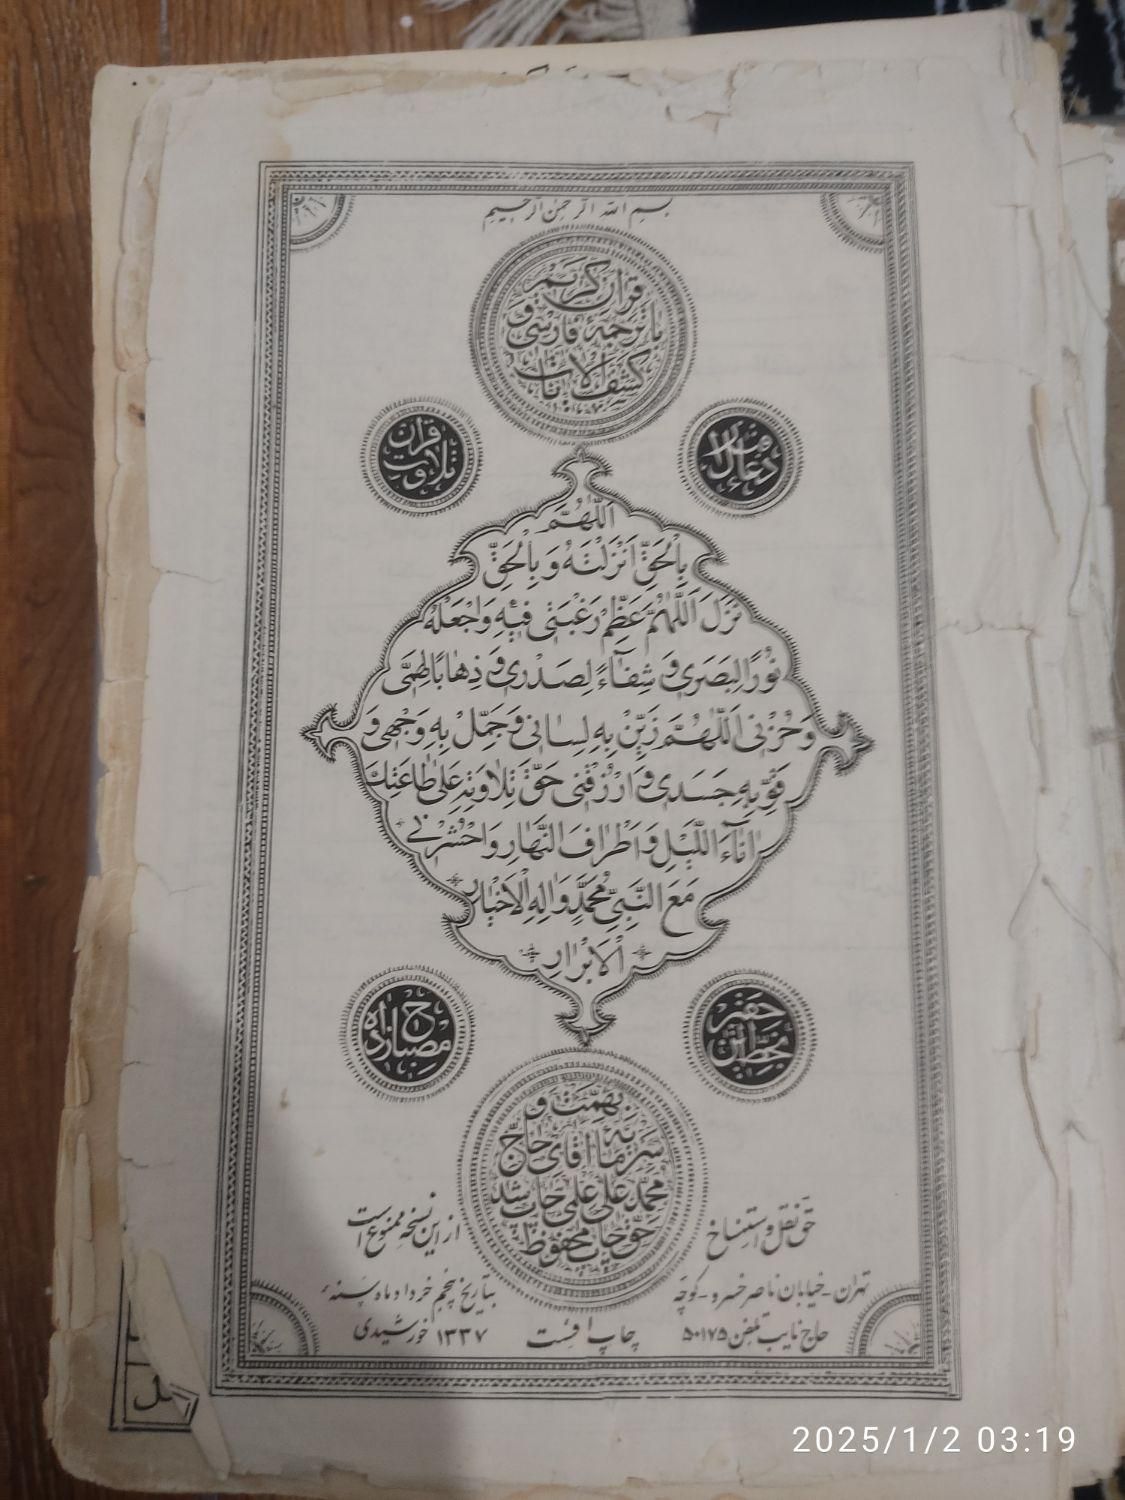 بسم الله الرحمن الرحیم
قرآن کریم
با ترجمهٔ فارسی و
کشف الآیات
دعای
تلاوت قرآن
اَللّٰهُمَّ
بِالْحَقِّ اَنْزَلْتَهُ وَ بِالْحَقِّ
نَزَلَ اَللّٰهُمَّ عَظِّمْ رَغْبَتی فیهِ وَاجْعَلْهُ
نُورًا لِبَصَری وَ شِفآءً لِصَدْری وَ ذِهابًا لِهَمّی
وَ حُزْنی اَللّٰهُمَّ زَیِّنْ بِهِ لِسانی وَ جَمِّلْ بِهِ وَجْهی وَ
قَوِّ بِهِ جَسَدی وَ ارْزُقْنی حَقَّ تِلاوَتِهِ عَلیٰ طاعَتِكَ
اٰنآءَ اللَّیْلِ وَ اَطْرافَ النَّهارِ وَ احْشُرْنی
مَعَ النَّبِیِّ مُحَمَّدٍ وَ اٰلِهِ الْاَخْیارِ
الْاَبْرارِ
ح
بهمت و
سرمایه آقای حاج
محمد علی علمی چاپ شد
حق چاپ محفوظ
حق نقل و استنساخ از این نسخه ممنوع است
تهران - خیابان ناصر خسرو - کوچه
حاج نایب تلفن ۵۰۱۷۵
چاپ افست
بتاریخ پنجم خرداد ماه سنه
۱۳۳۷ خورشیدی
2025/1/2 03:19